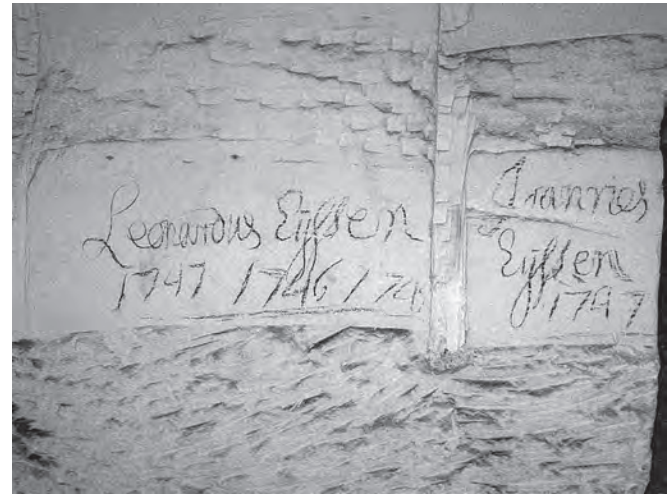 Leonardus Eyssen
1747 1746
Joannes
Eyssen
1747